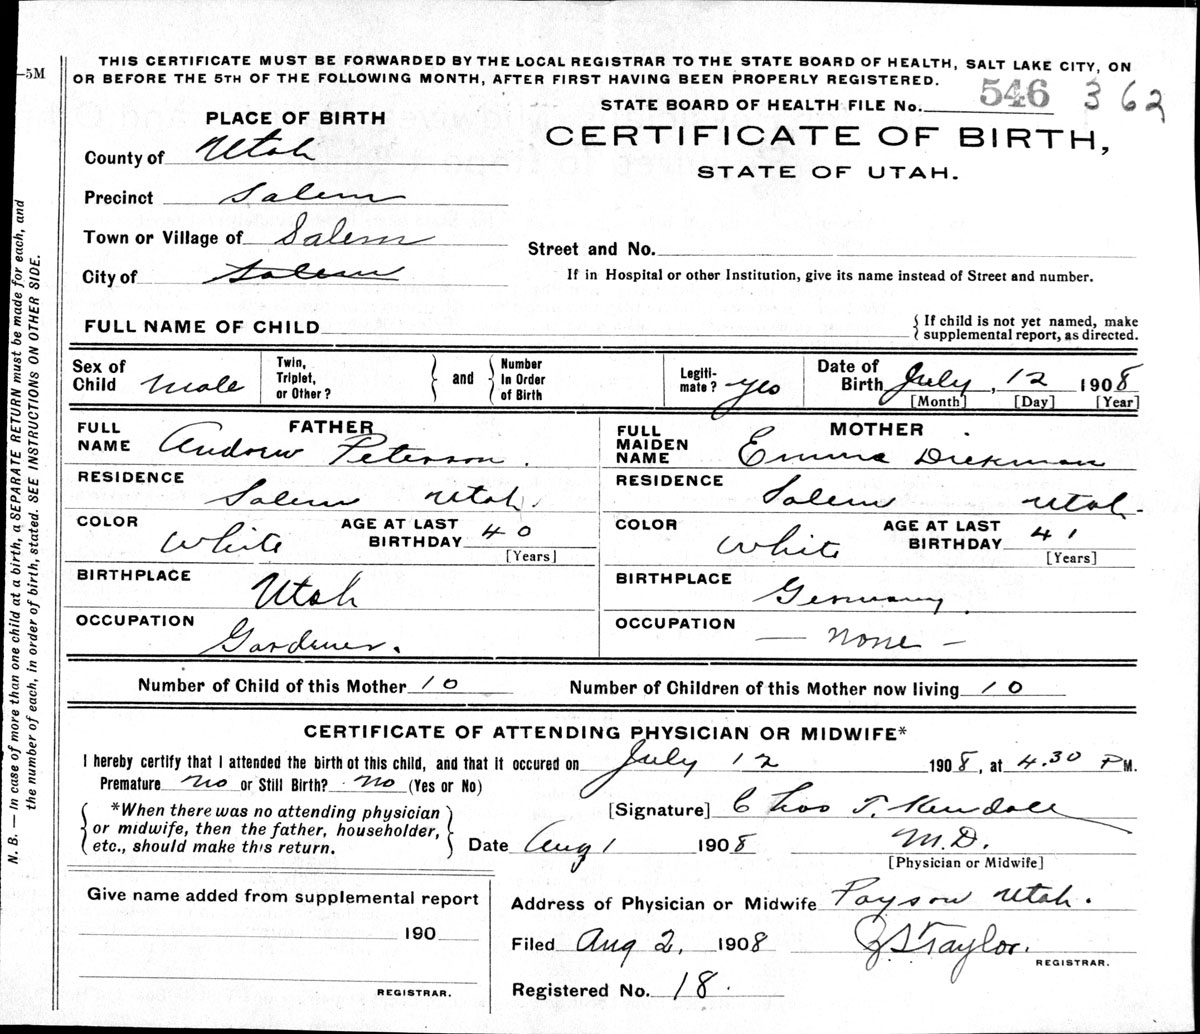 THIS CERTIFICATE MUST BE FORWARDED BY THE LOCAL REGISTRAR TO THE STATE BOARD OF HEALTH, SALT LAKE CITY, ON
OR BEFORE THE 5TH OF THE FOLLOWING MONTH, AFTER FIRST HAVING BEEN PROPERLY REGISTERED.
—5M
STATE BOARD OF HEALTH FILE No. 546 362
PLACE OF BIRTH
CERTIFICATE OF BIRTH,
STATE OF UTAH.
County of Utah
Precinct Salem
Town or Village of Salem
Street and No.
City of Salem
If in Hospital or other Institution, give its name instead of Street and number.
FULL NAME OF CHILD
{ If child is not yet named, make
supplemental report, as directed.
Sex of Child Male
Twin, Triplet, or Other?
and
Number In Order of Birth
Legiti-mate? yes
Date of Birth July, 12 1908
[Month] [Day] [Year]
FATHER
FULL NAME Andrew Peterson.
RESIDENCE
Salem Utah.
COLOR White
AGE AT LAST BIRTHDAY 40
[Years]
BIRTHPLACE
Utah
OCCUPATION
Gardener.
MOTHER
FULL MAIDEN NAME Emma Diekman
RESIDENCE
Salem Utah.
COLOR White
AGE AT LAST BIRTHDAY 41
[Years]
BIRTHPLACE
Germany.
OCCUPATION
— none —
Number of Child of this Mother 10
Number of Children of this Mother now living 10
CERTIFICATE OF ATTENDING PHYSICIAN OR MIDWIFE*
I hereby certify that I attended the birth of this child, and that it occured on July 12 1908, at 4.30 P M.
Premature No or Still Birth? No (Yes or No)
*When there was no attending physician
or midwife, then the father, householder,
etc., should make this return.
[Signature] Chas T. Kendall
Date Aug 1 1908
M.D.
[Physician or Midwife]
Give name added from supplemental report
190
REGISTRAR.
Address of Physician or Midwife Payson Utah.
Filed Aug 2, 1908
Taylor.
REGISTRAR.
Registered No. 18.
N. B. — In case of more than one child at a birth, a SEPARATE RETURN must be made for each, and
the number of each, in order of birth, stated. SEE INSTRUCTIONS ON OTHER SIDE.